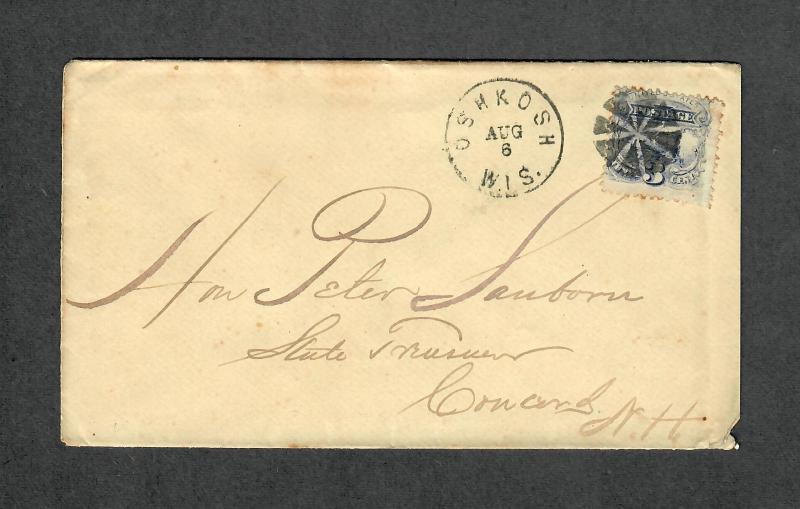 OSHKOSH
AUG
6
WIS.
POSTAGE
3
CENTS
Hon Peter Sanborn
State Treasurer
Concord.
N.H.